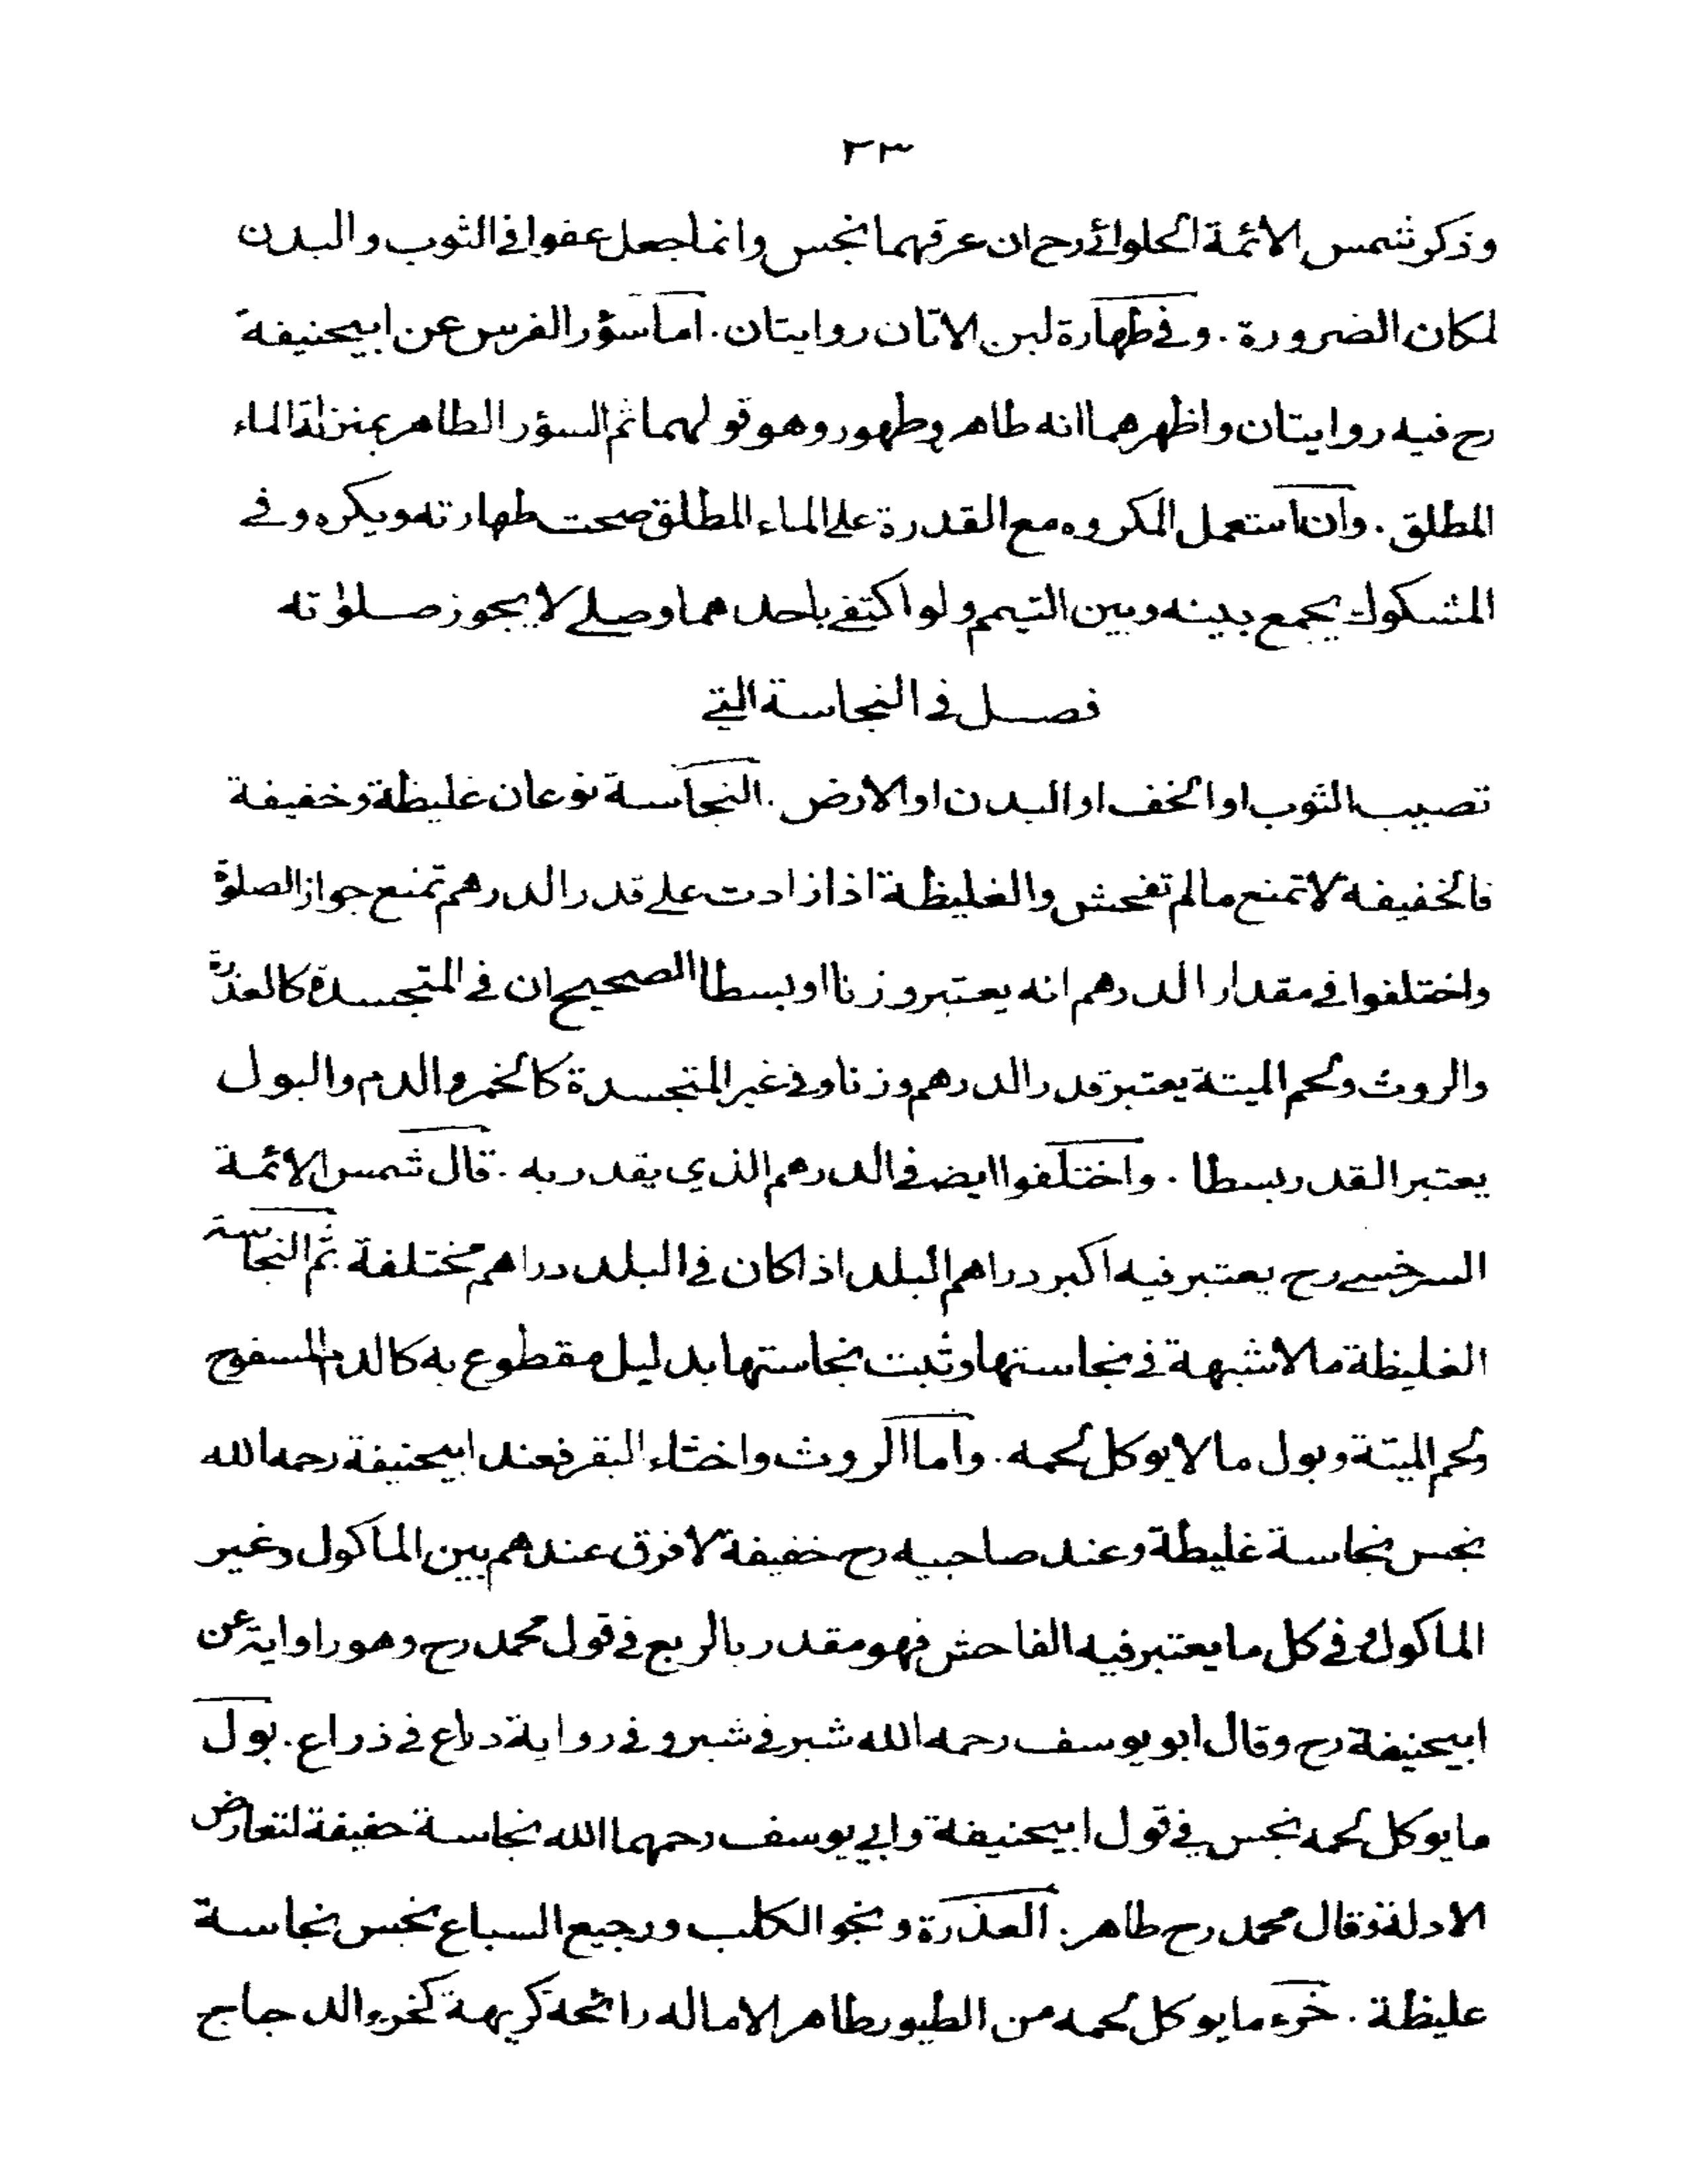 ٢٣
وذكر شمس الائمة الحلوائے رح ان عرقهما نجس وانما جعل عفوا في الثوب والبدن
لمكان الضرورة . وفے طهارة لبن الاتان روايتان . اما سؤر الفرس عن ابيحنيفة
رح فيه روايتان واظهرهما انه طاهر وطهور وهو قولهما ثم السؤر الطاهر بمنزلة الماء
المطلق . وان استعمل المكروه مع القدرة علے الماء المطلق صحت طهارته ويكره وفے
المشكوك يجمع بينه وبين التيمم ولو اكتفے باحدهما وصلے لا يجوز صلوٰته
فصل في النجاسة التے
تصيب الثوب او الخف او البدن او الارض . النجاسة نوعان غليظة وخفيفة
فالخفيفة لا تمنع ما لم تفحش والغليظة اذا زادت علے قدر الدرهم تمنع جواز الصلوة
واختلفوا في مقدار الدرهم انه يعتبر وزنا او بسطا الصحيح ان في المتجسدة كالعذرة
والروث ولحم الميتة يعتبر قدر الدرهم وزنا وفي غير المتجسدة كالخمر والدم والبول
يعتبر القدر بسطا . واختلفوا ايضا في الدرهم الذي يقدر به . قال شمس الائمة
السرخسے رح يعتبر فيه اكبر دراهم البلد اذا كان في البلد دراهم مختلفة . ثم النجاسة
الغليظة ما لا شبهة في نجاستها وثبت نجاستها بدليل مقطوع به كالدم المسفوح
ولحم الميتة وبول ما لا يوكل لحمه . واما الروث واخثاء البقر فعند ابيحنيفة رحمه الله
نجس نجاسة غليطة وعند صاحبيه رح خفيفة لا فرق عندهم بين الماكول وغير
الماكول وفي كل ما يعتبر فيه الفاحش فهو مقدر بالربع في قول محمد رح وهو راواية عن
ابيحنيفة رح وقال ابو يوسف رحمه الله شبر في شبر وفي رواية ذراع في ذراع . بول
ما يوكل لحمه نجس في قول ابيحنيفة وابي يوسف رحمهما الله نجاسة خفيفة لتعارض
الادلة وقال محمد رح طاهر . العذرة ونجو الكلب ورجيع السباع نجس نجاسة
غليظة . خرء ما يوكل لحمه من الطيور طاهر الا ما له رائحة كريهة كخرء الدجاج